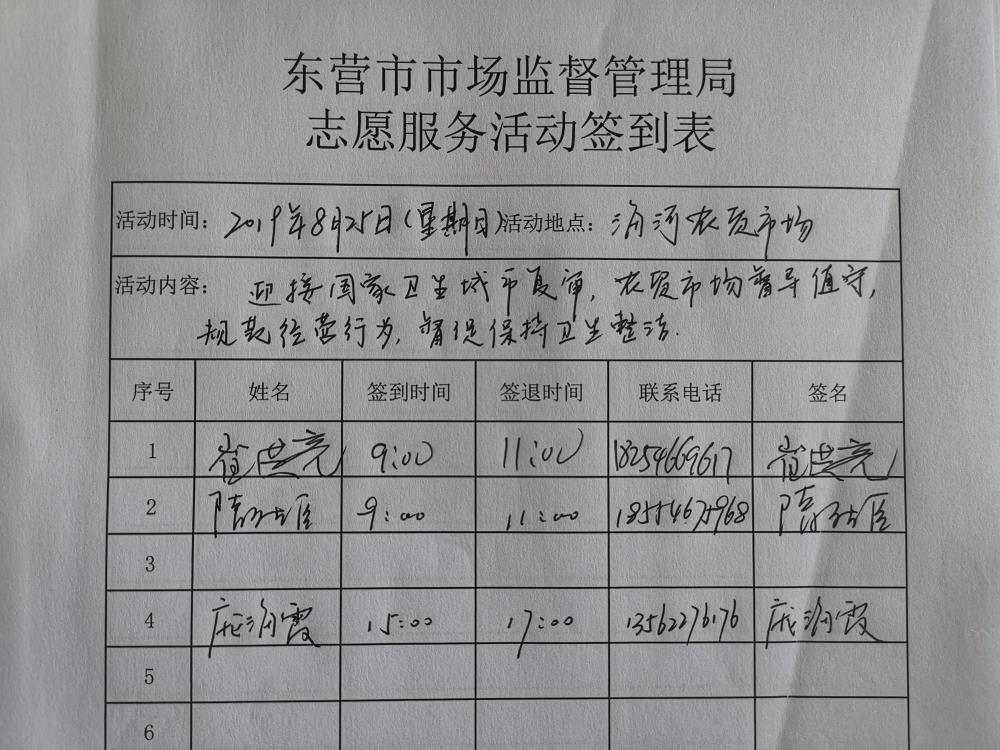 东营市市场监督管理局
志愿服务活动签到表
活动时间：2019年8月25日(星期日) 活动地点：消河农贸市场
活动内容：迎接国家卫生城市复审，农贸市场督导值守，
规范经营行为，督促保持卫生整洁.
序号 姓名 签到时间 签退时间 联系电话 签名
1 崔洪亮 9:00 11:00 18254669617 崔洪亮
2 9:00 11:00 18554675968
3
4 庞海霞 15:00 17:00 13562276176 庞海霞
5
6